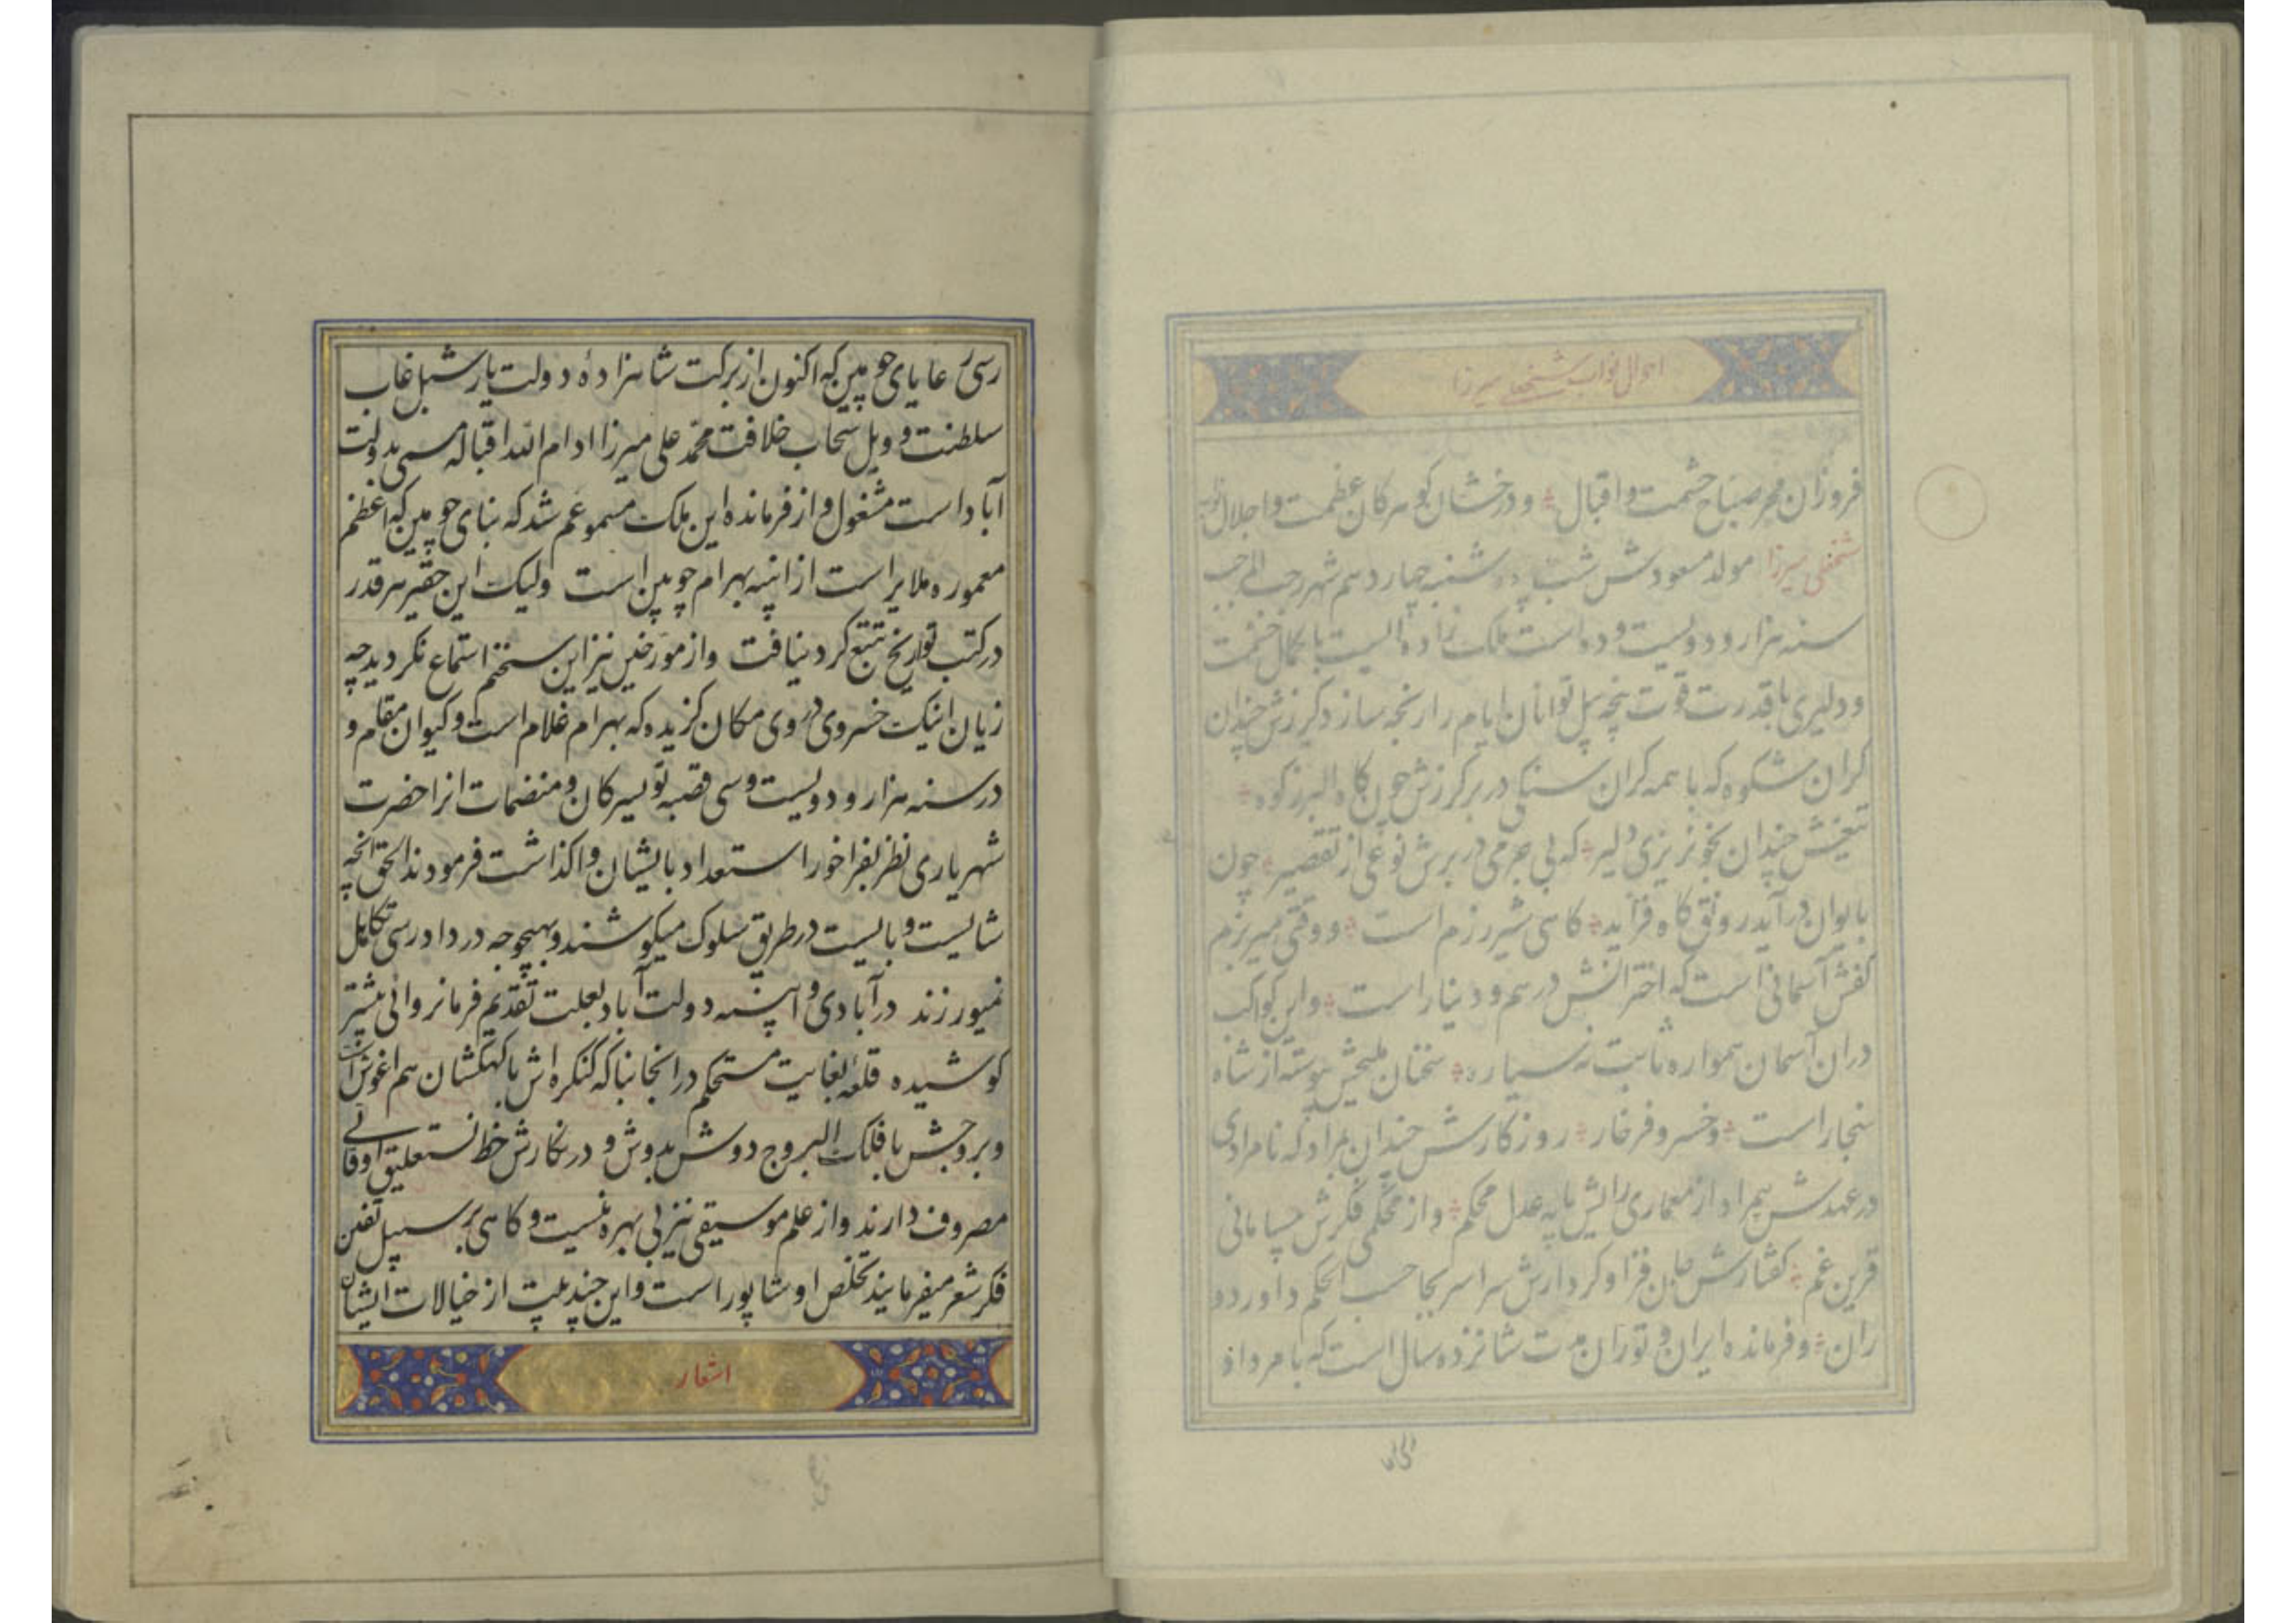 احوال نواب شیخعلی میرزا
فروزان مهر صباح حشمت و اقبال و درخشان گوهر کان عظمت و اجلال
شیخعلی میرزا مولد مسعودش شب دوشنبه چهاردهم شهر رجب المرجب
سنه هزار و دویست و ده است ملک زاده ایست با کمال حشمت
و دلیری با قدرت قوت پنجه پیل توانان ایام را رنجه سازد گرزش چندان
کران شکوه که با همه کران سنگی در بر گرزش چون کاه البرز کوه
تیغش چندان بخونریزی دلیر که بی جرمی در برش نوعی از تقصیر چون
بایوان درآید رونق گاه فزاید گاهی شیر رزم است و وقتی میر بزم
کفش آسمانی است که اخترانش درهم و دینار است و این کواکب
دران آسمان همواره ثابت نه سیاره سخنان ملیحش پیوسته از شاه
سنجار است و خسرو فرخار روزگارش چندان بمراد که نامرادی
در عهدش بمراد از معماری رایش پایه عدل محکم و از محکمی فکرش
قرین غم گفتارش جان فزا و کردارش سراسر بجا حسب الحکم داور دو
ران و فرمانده ایران و توران مدت شانزده سال است که بامر داد
رسی رعایای چوبین که اکنون از برکت شاهزاده دولت یار شبل غاب
سلطنت و وبل سحاب خلافت محمد علی میرزا ادام الله اقباله مسمی بدولت
آباد است مشغول و از فرمانده این ملک مسموعم شد که بنای چوبین که اعظم
معموره ملایر است از ابنیه بهرام چوبین است ولیک این حقیر هر قدر
در کتب تواریخ تتبع کرد نیافت و از مورخین نیز این سخنم استماع نکردید چه
زیان اینک خسروی در وی مکان گزیده که بهرام غلام است و کیوان مقام و
در سنه هزار و دویست و سی قصبه تویسرکان و منضمات انرا حضرت
شهریاری نظر بفراخور استعداد بایشان واگذاشت فرمودند الحق انچه
شایست و بایست در طریق سلوک میکوشند و بهیچوجه در دادرسی تکاهل
نمیورزند در آبادی و ابنیه دولت آباد بعلت تقدیم فرمانروائی بیشتر
کوشیده قلعه بغایت مستحکم در انجا بنا که کنگره اش با کهکشان هم اغوش است
و بروجش با فلک البروج دوش بدوش و در نگارش خط نستعلیق اوقاتی
مصروف دارند و از علم موسیقی نیز بی بهره نیست و گاهی بر سبیل تفنن
فکر شعر میفرمایند تخلص او شاپور است و این چند بیت از خیالات ایشان
اشعار